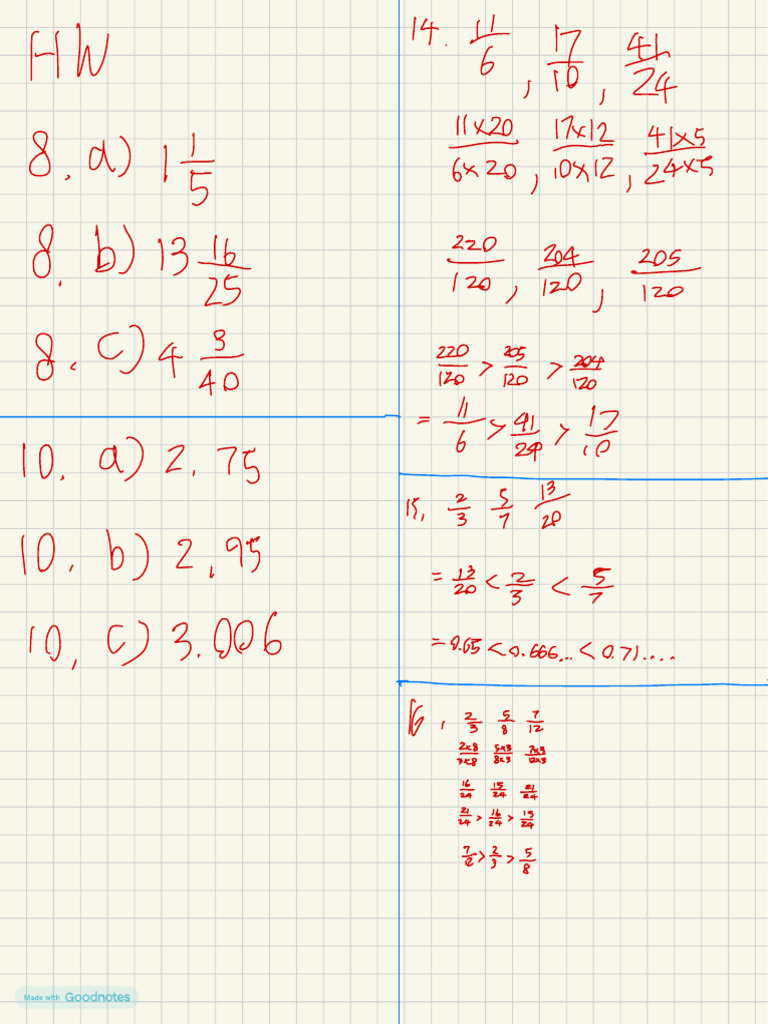 HW
8. a) 1 1/5
8. b) 13 16/25
8. c) 4 3/40
10. a) 2.75
10. b) 2.95
10. c) 3.006
14. 11/6, 17/10, 41/24
11×20/6×20, 17×12/10×12, 41×5/24×5
220/120, 204/120, 205/120
220/120 > 205/120 > 204/120
= 11/6 > 41/24 > 17/10
15. 2/3 5/7 13/20
= 13/20 < 2/3 < 5/7
= 0.65 < 0.666... < 0.71....
16. 2/3 5/8 7/12
2×8/3×8 5×3/8×3 7×3/12×3
16/24 15/24 21/24
21/24 > 16/24 > 15/24
7/12 > 2/3 > 5/8
Made with Goodnotes